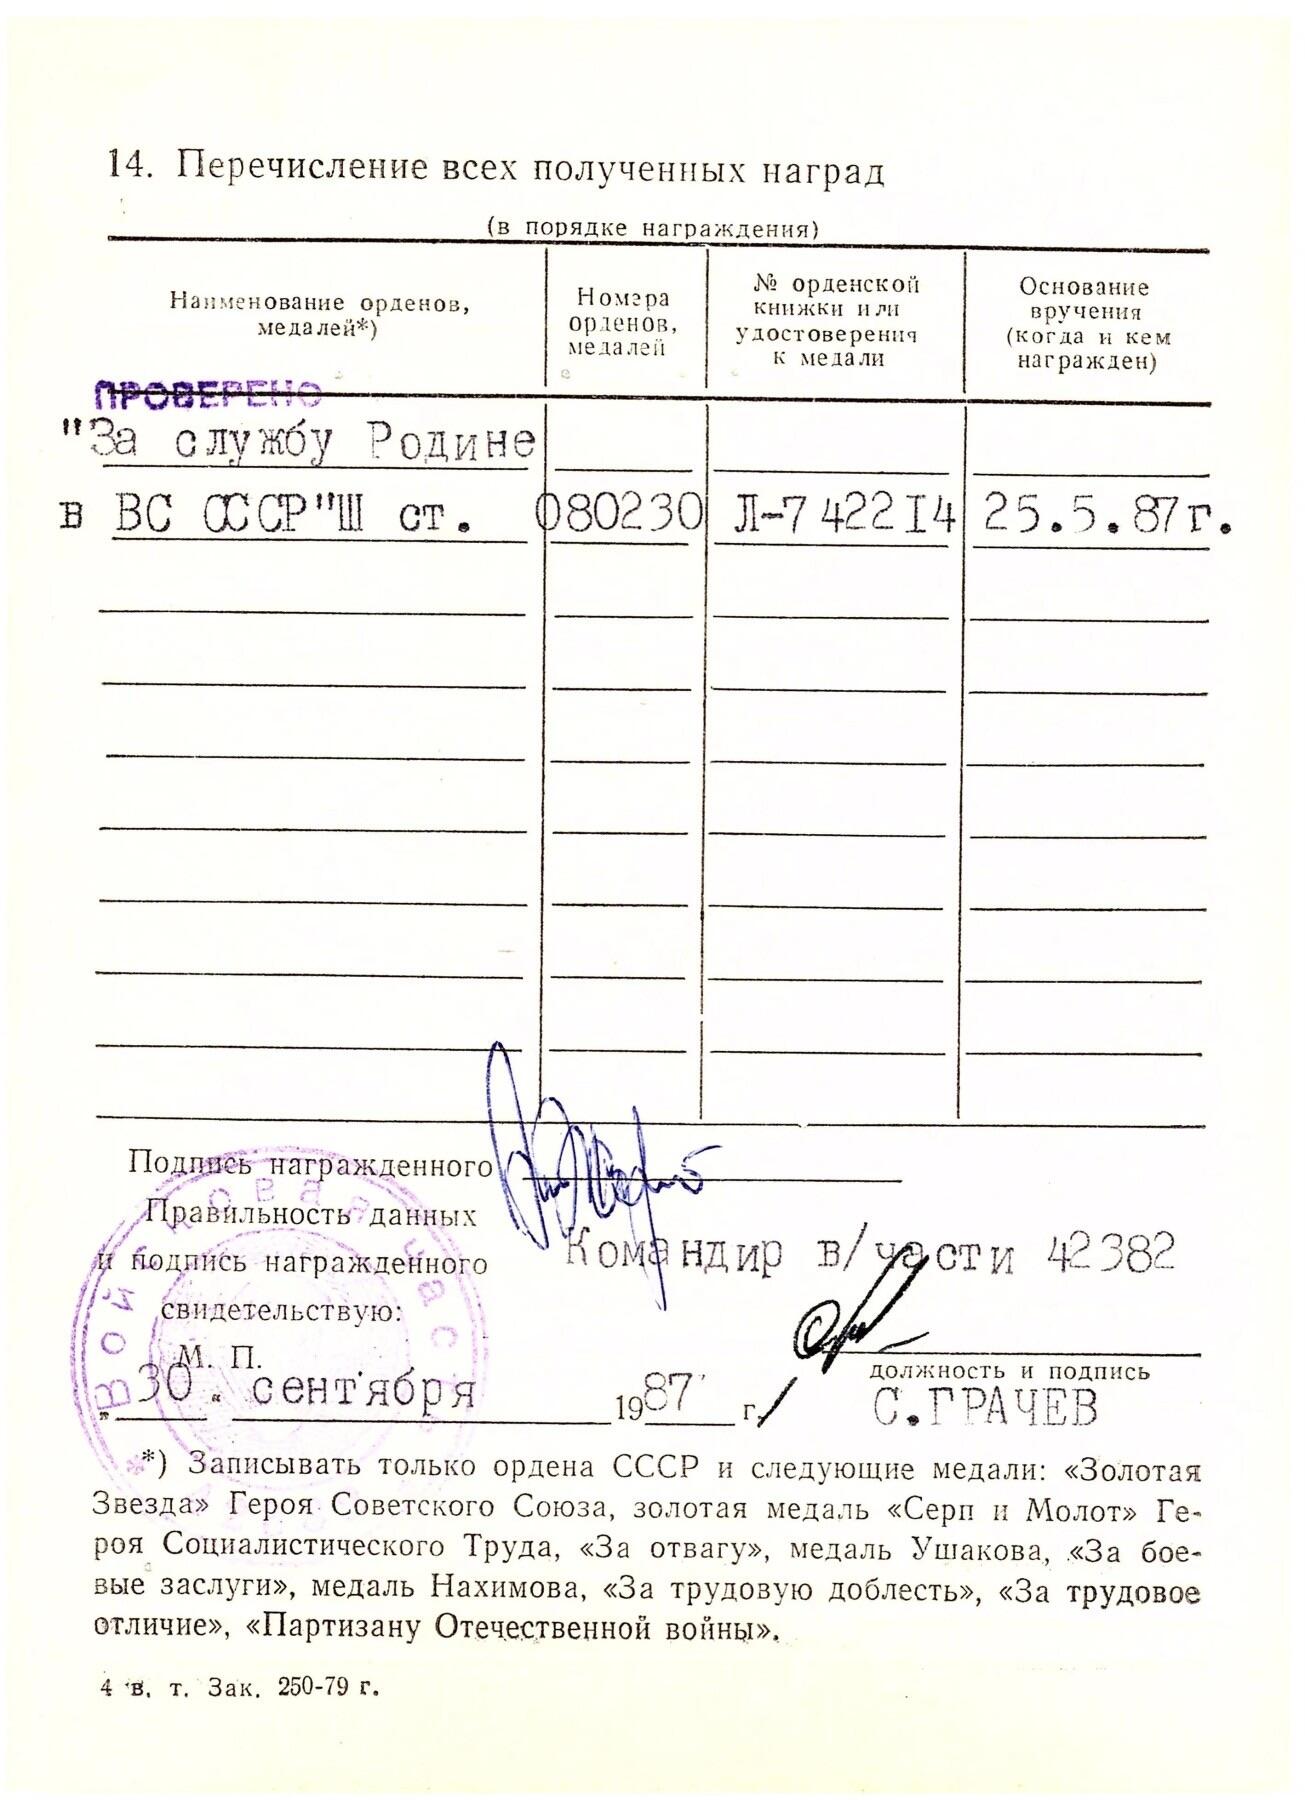 14. Перечисление всех полученных наград
(в порядке награждения)
Наименование орденов,
медалей*)
Номера
орденов,
медалей
№ орденской
книжки или
удостоверения
к медали
Основание
вручения
(когда и кем
награжден)
ПРОВЕРЕНО
"За службу Родине
в ВС СССР"Ш ст. 080230 Л-742214 25.5.87г.
Подпись награжденного
Правильность данных
и подпись награжденного
свидетельствую:
Командир в/части 42382
М. П.
должность и подпись
„30“ сентября 1987 г.
С.ГРАЧЕВ
Войсковая част
*) Записывать только ордена СССР и следующие медали: «Золотая
Звезда» Героя Советского Союза, золотая медаль «Серп и Молот» Ге-
роя Социалистического Труда, «За отвагу», медаль Ушакова, «За бое-
вые заслуги», медаль Нахимова, «За трудовую доблесть», «За трудовое
отличие», «Партизану Отечественной войны».
4 в. т. Зак. 250-79 г.